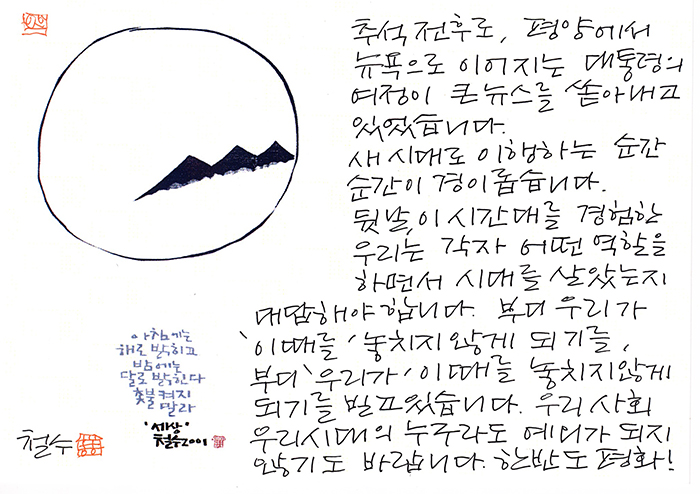 추석 전후로, 평양에서
뉴욕으로 이어지는 대통령의
여정이 큰 뉴스를 쏟아내고
있었습니다.
새 시대로 이행하는 순간
순간이 경이롭습니다.
뒷날, 이 시간대를 경험한
우리는 각자 어떤 역할을
하면서 시대를 살았는지
대답해야 합니다. 부디 우리가
'이때를' 놓치지 않게 되기를,
부디 '우리가' 이때를 놓치지않게
되기를 빌고있습니다. 우리 사회
우리시대의 누구라도 예외가 되지
않기도 바랍니다. 한반도 평화!
아침에는
해로 밝히고
밤에는
달로 밝힌다
촛불 켜지
말라
'세상'
철수2001
철수